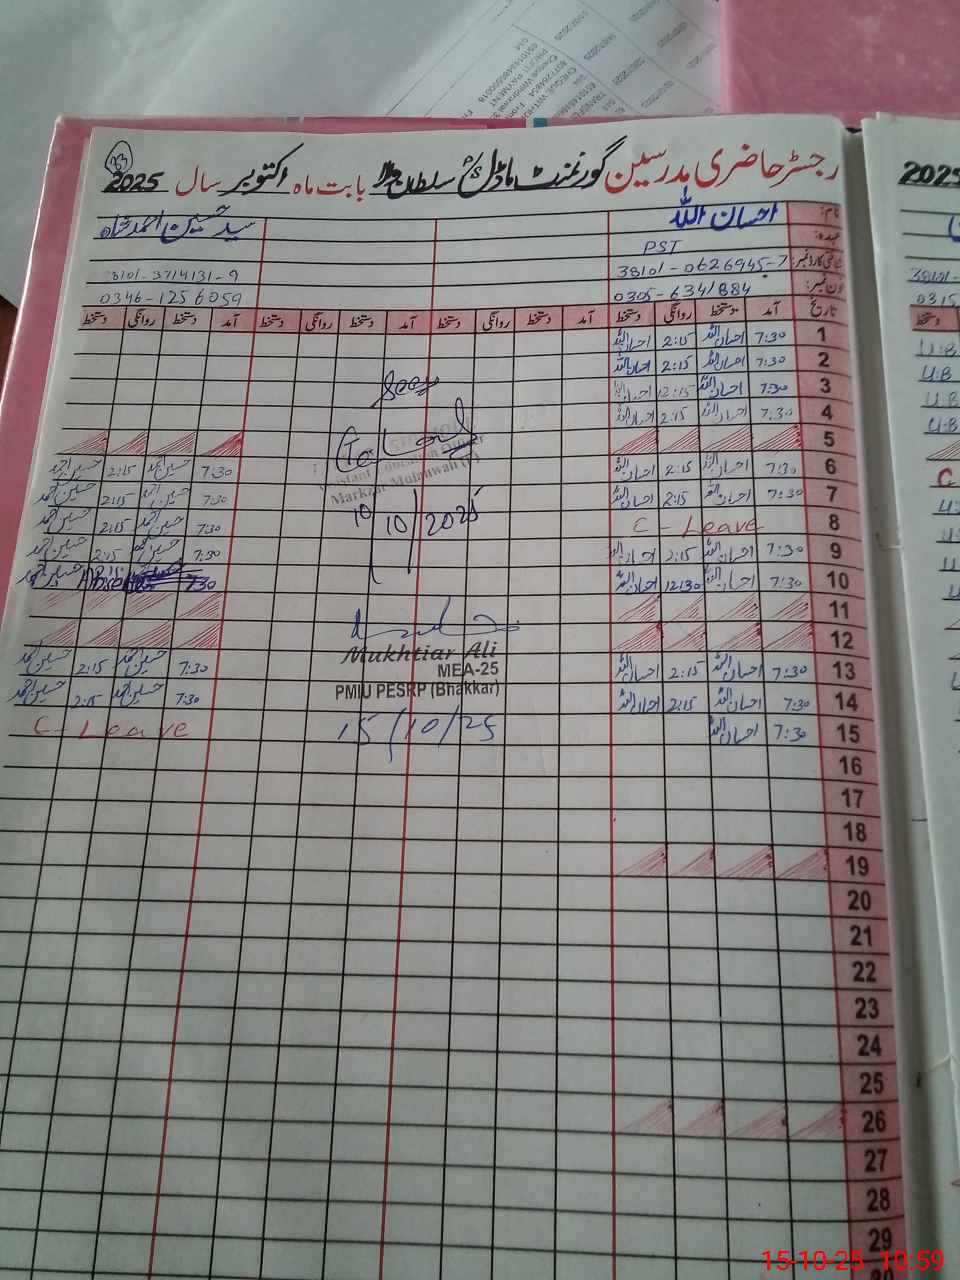 رجسٹر حاضری مدرسین گورنمنٹ ماڈل P/S سلطان بابت ماہ اکتوبر سال 2025
نام: احسان اللہ
سید حسین احمد شاہ
عہدہ: PST
شناختی کارڈ نمبر: 38101-0626945-7
38101-3714131-9
فون نمبر: 0305-6341884
0346-1256059
تاریخ آمد دستخط روانگی دستخط آمد دستخط روانگی دستخط آمد دستخط روانگی دستخط
1 7:30 احسان اللہ 2:15 احسان اللہ
2 7:30 احسان اللہ 2:15 احسان اللہ
3 7:30 احسان اللہ 12:15 احسان اللہ
4 7:30 احسان اللہ 2:15 احسان اللہ
5
6 7:30 احسان اللہ 2:15 احسان اللہ 7:30 حسین احمد 2:15 حسین احمد
7 7:30 احسان اللہ 2:15 احسان اللہ 7:30 حسین احمد 2:15 حسین احمد
8 C-Leave 7:30 حسین احمد 2:15 حسین احمد
9 7:30 احسان اللہ 2:15 احسان اللہ 7:30 حسین احمد 2:15 حسین احمد
10 7:30 احسان اللہ 12:30 احسان اللہ 7:30 حسین احمد
11
12
13 7:30 احسان اللہ 2:15 احسان اللہ 7:30 حسین احمد 2:15 حسین احمد
14 7:30 احسان اللہ 2:15 احسان اللہ 7:30 حسین احمد 2:15 حسین احمد
15 7:30 احسان اللہ C-Leave
16
17
18
19
20
21
22
23
24
25
26
27
28
29
Seen
Education Officer
Markaz
10/10/2025
Mukhtiar Ali
MEA-25
PMIU PESRP (Bhakkar)
15/10/25
2025
15-10-25 10:59